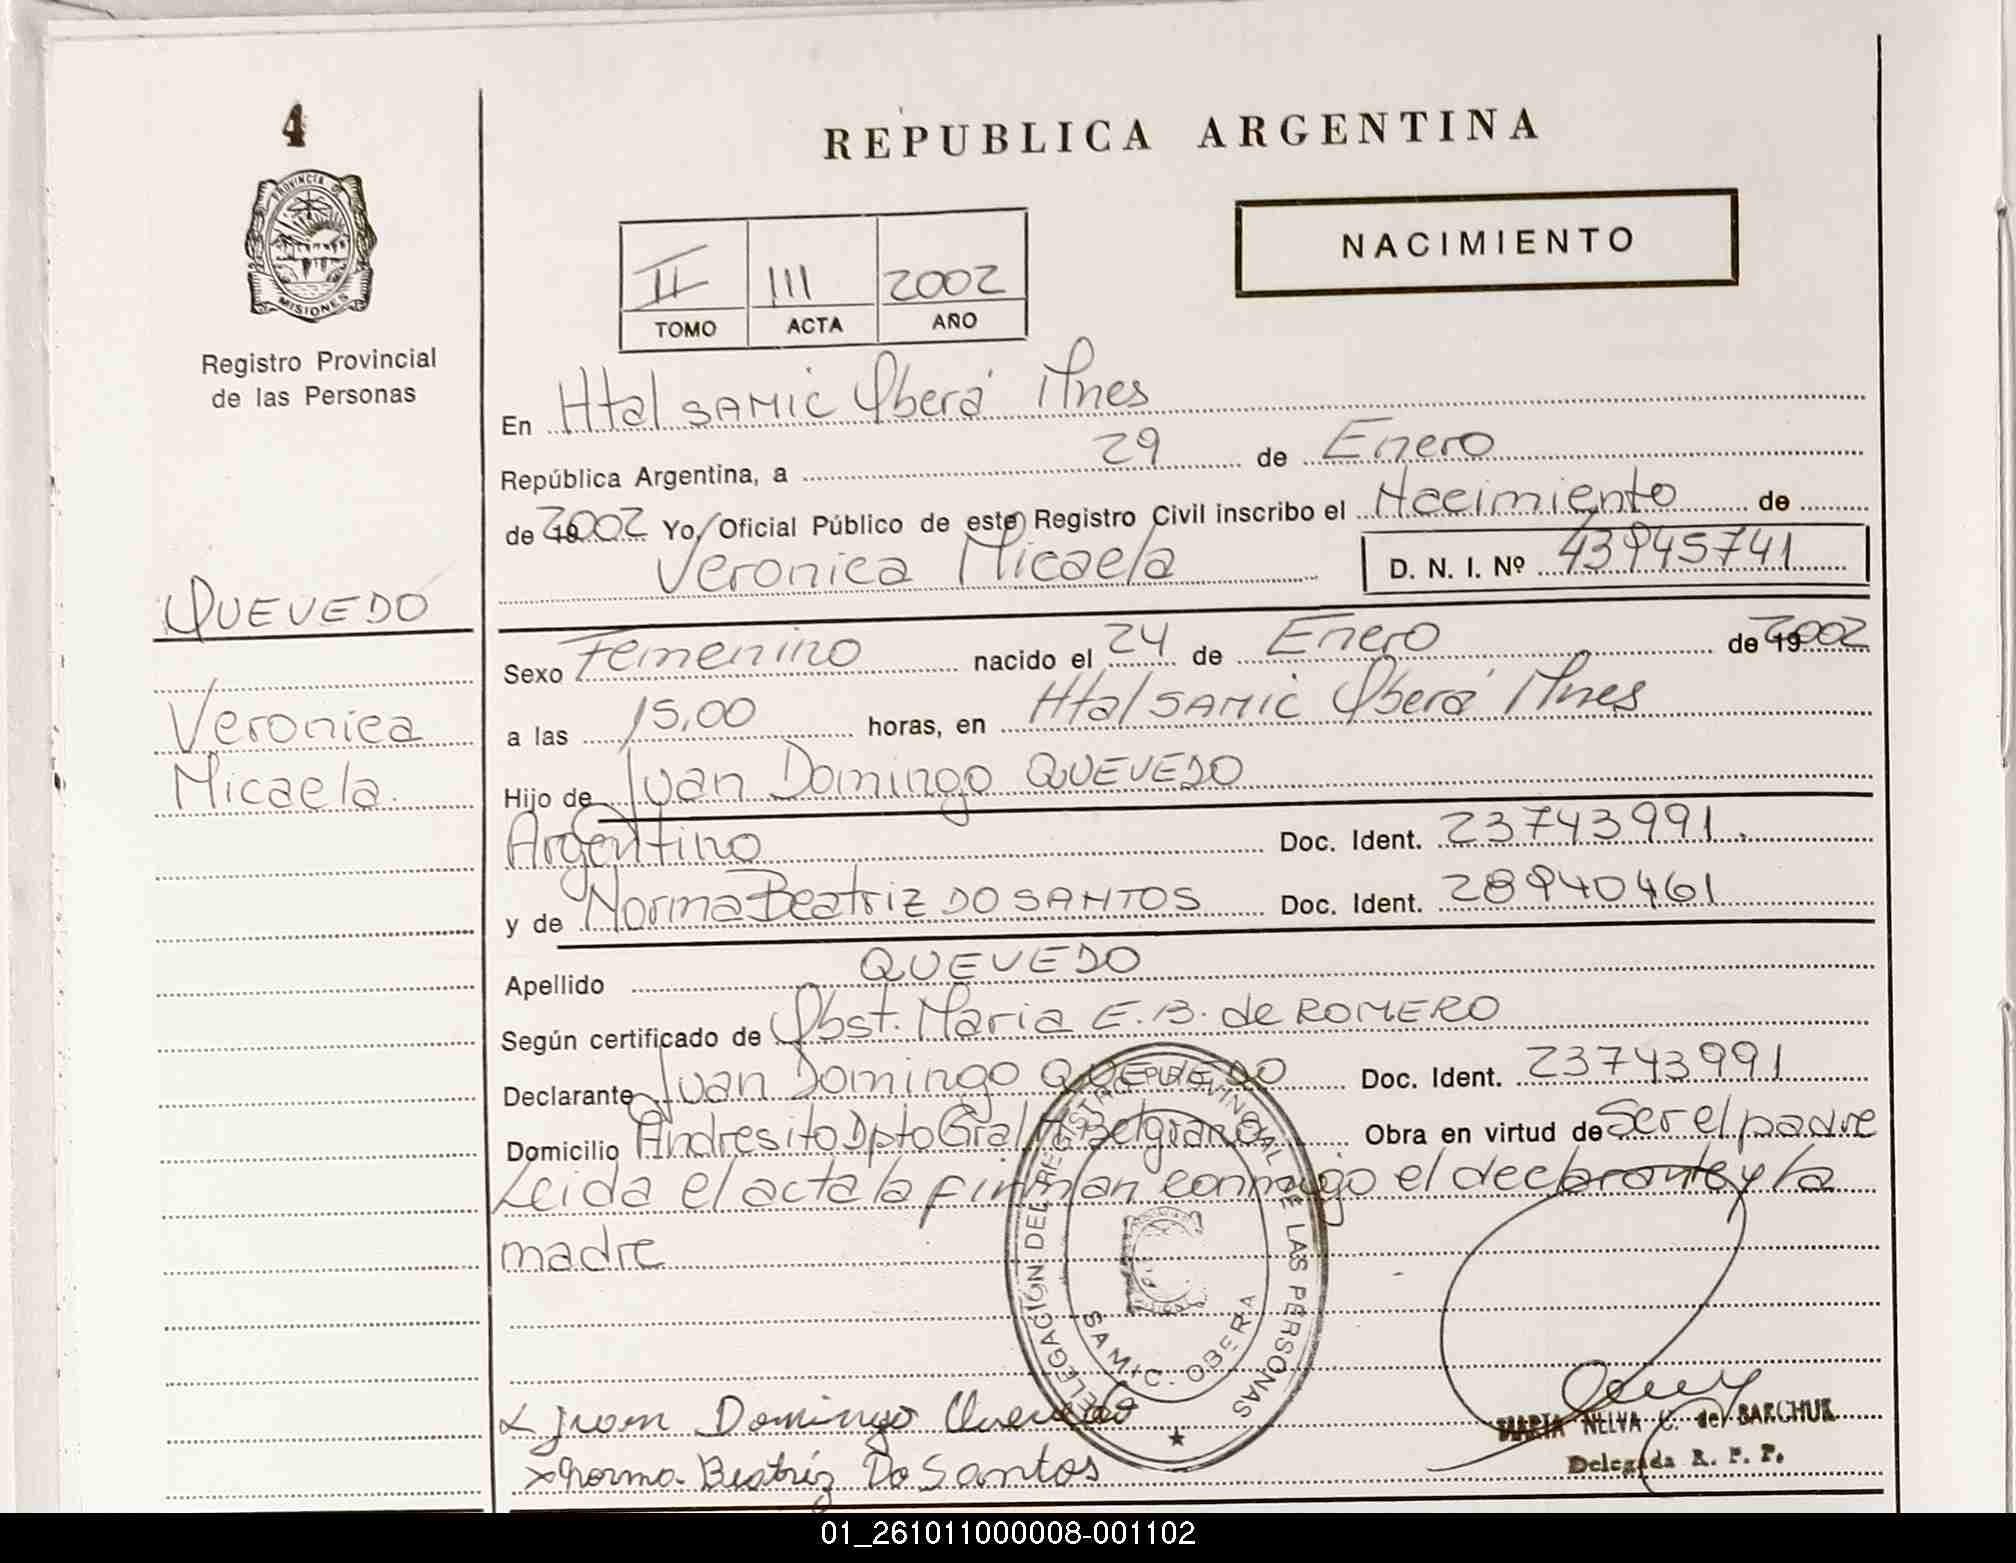 4
PROVINCIA DE
MISIONES
Registro Provincial
de las Personas
REPUBLICA ARGENTINA
NACIMIENTO
II 111 2002
TOMO ACTA AÑO
En Htal SAMIC Oberá Mnes
República Argentina, a 29 de Enero
de 2002 Yo, Oficial Público de este Registro Civil inscribo el Nacimiento de
Veronica Micaela D. N. I. Nº 43945741
QUEVEDO
Veronica
Micaela.
Sexo Femenino nacido el 24 de Enero de 19 2002
a las 15,00 horas, en Htal SAMIC Oberá Mnes
Hijo de Juan Domingo QUEVEDO
Argentino Doc. Ident. 23743991.
y de Norma Beatriz DO SANTOS Doc. Ident. 28940461
Apellido QUEVEDO
Según certificado de Obst. Maria E. B. de ROMERO
Declarante Juan Domingo QUEVEDO Doc. Ident. 23743991
Domicilio Andresito Dpto Gral M Belgrano Obra en virtud de Ser el padre
Leida el acta la firman conmigo el declarante y la
madre
DELEGACIÓN DEL REGISTRO PROVINCIAL DE LAS PERSONAS
SAMIC. OBERA
Juan Domingo Quevedo
x Norma Beatriz Do Santos
MARIA NELVA C. de SARCHUK
Delegada R. P. P.
01_261011000008-001102